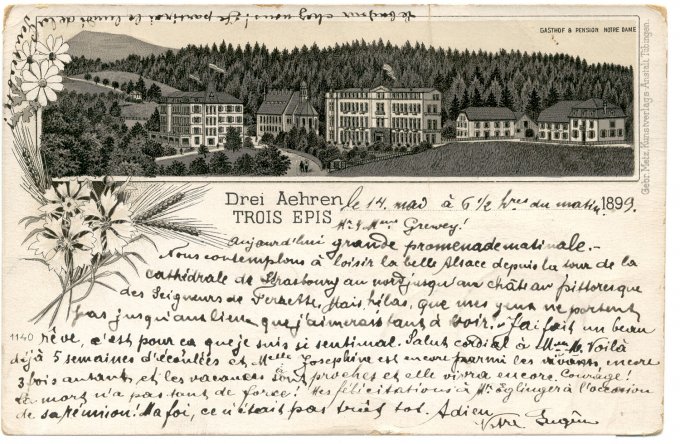 GASTHOF & PENSION NOTRE DAME
Gebr. Metz, Kunstverlags-Anstalt, Tübingen.
Drei Aehren
TROIS EPIS
le 14. mai à 6 1/2 hres du matin 1899.
Mr. & Mme Grewey!
Aujourd'hui grande promenade matinale.-
Nous contemplons à loisir la belle Alsace depuis la tour de la
cathédrale de Strasbourg au nord jusqu'au château pittoresque
des Seigneurs de Ferrette, Mais hélas, que mes yeux ne portent
pas jusqu'au lieu que j'aimerais tant à voir. - J'ai fait un beau
1140
rêve, c'est pour ça que je suis si sentimal. Salut cordial à Mme M. Voilà
déjà 5 semaines d'écoulées et Melle Josephine est encore parmi les vivants encore
3 fois autant, et les vacances sont proches et elle vivra encore. Courage!
La mort n'a pas tant de force! Mes félicitations à Mr. Eglinger à l'occasion
de sa réunion! Ma foi, ce n'était pas trop tot. Adieu
Votre Eugèn
chez vous! Je partirai le lundi de la